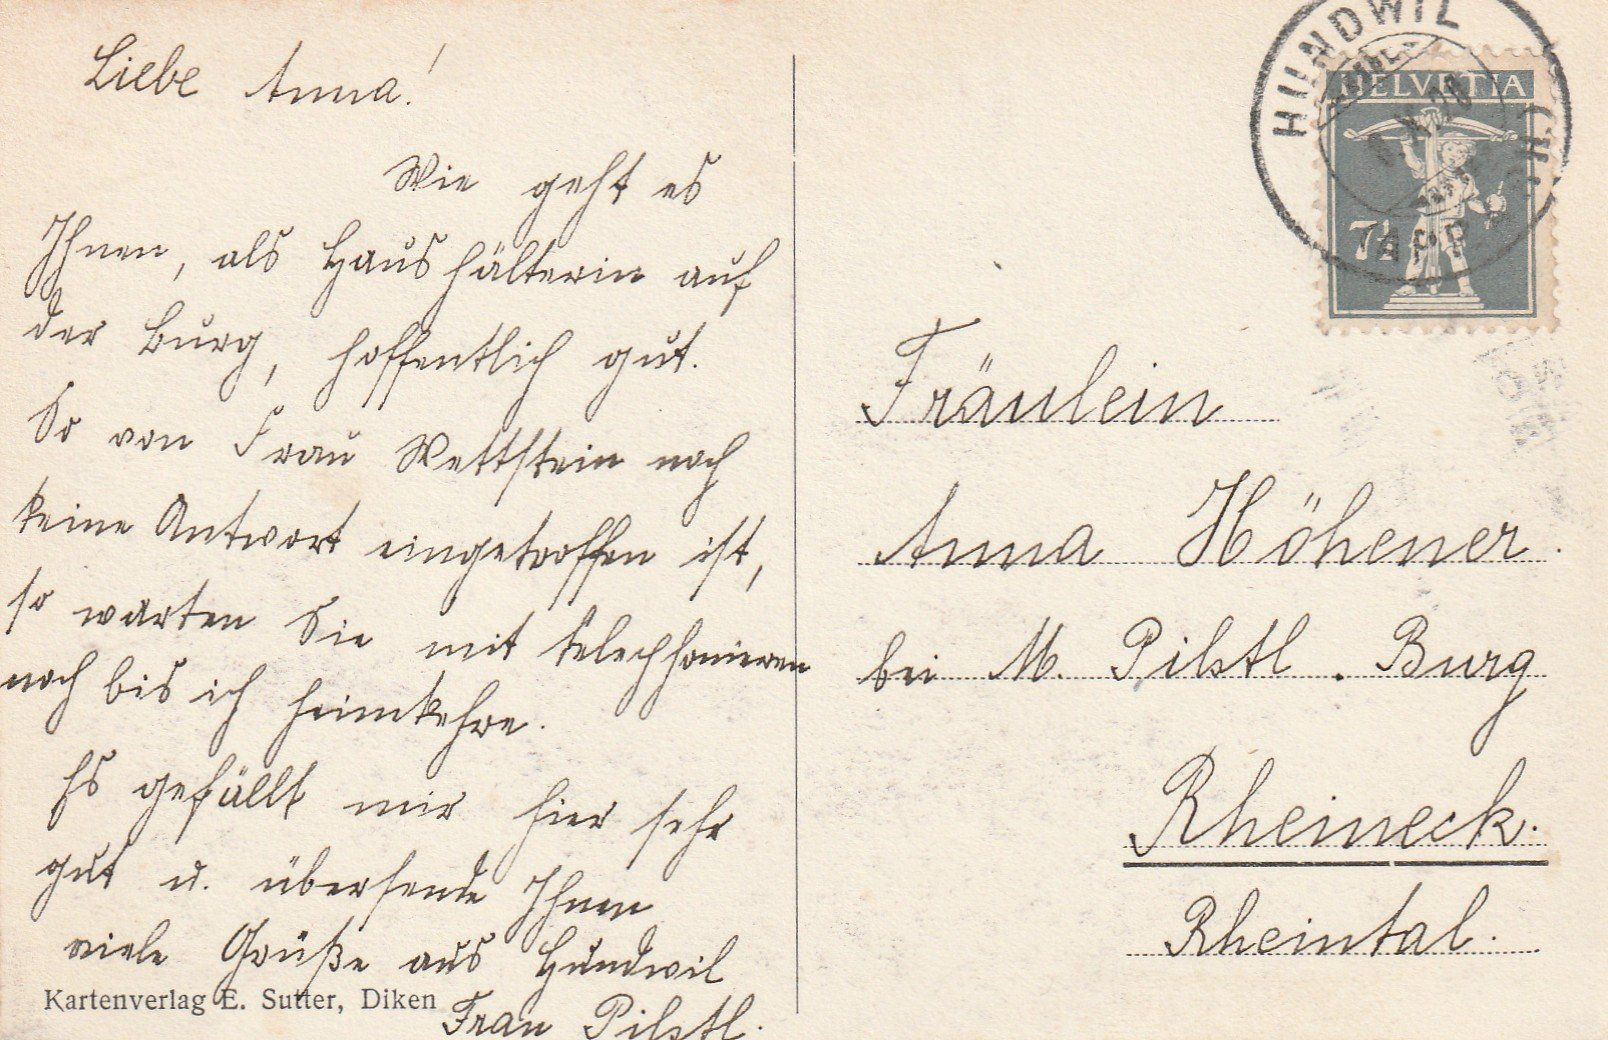 Liebe Anna!
Wie geht es
Ihnen, als Haushälterin auf
der Burg, hoffentlich gut.
So von Frau Wettstein noch
keine Antwort eingetroffen ist,
so warten Sie mit telephonieren
noch bis ich heimkehre.
Es gefällt mir hier sehr
gut u. übersende Ihnen
viele Grüße aus Hundwil
Frau Pilstl.
Kartenverlag E. Sutter, Diken
HUNDWIL
HELVETIA
7½
Fräulein
Anna Höhener.
bei M. Pilstl. Burg
Rheineck.
Rheintal.